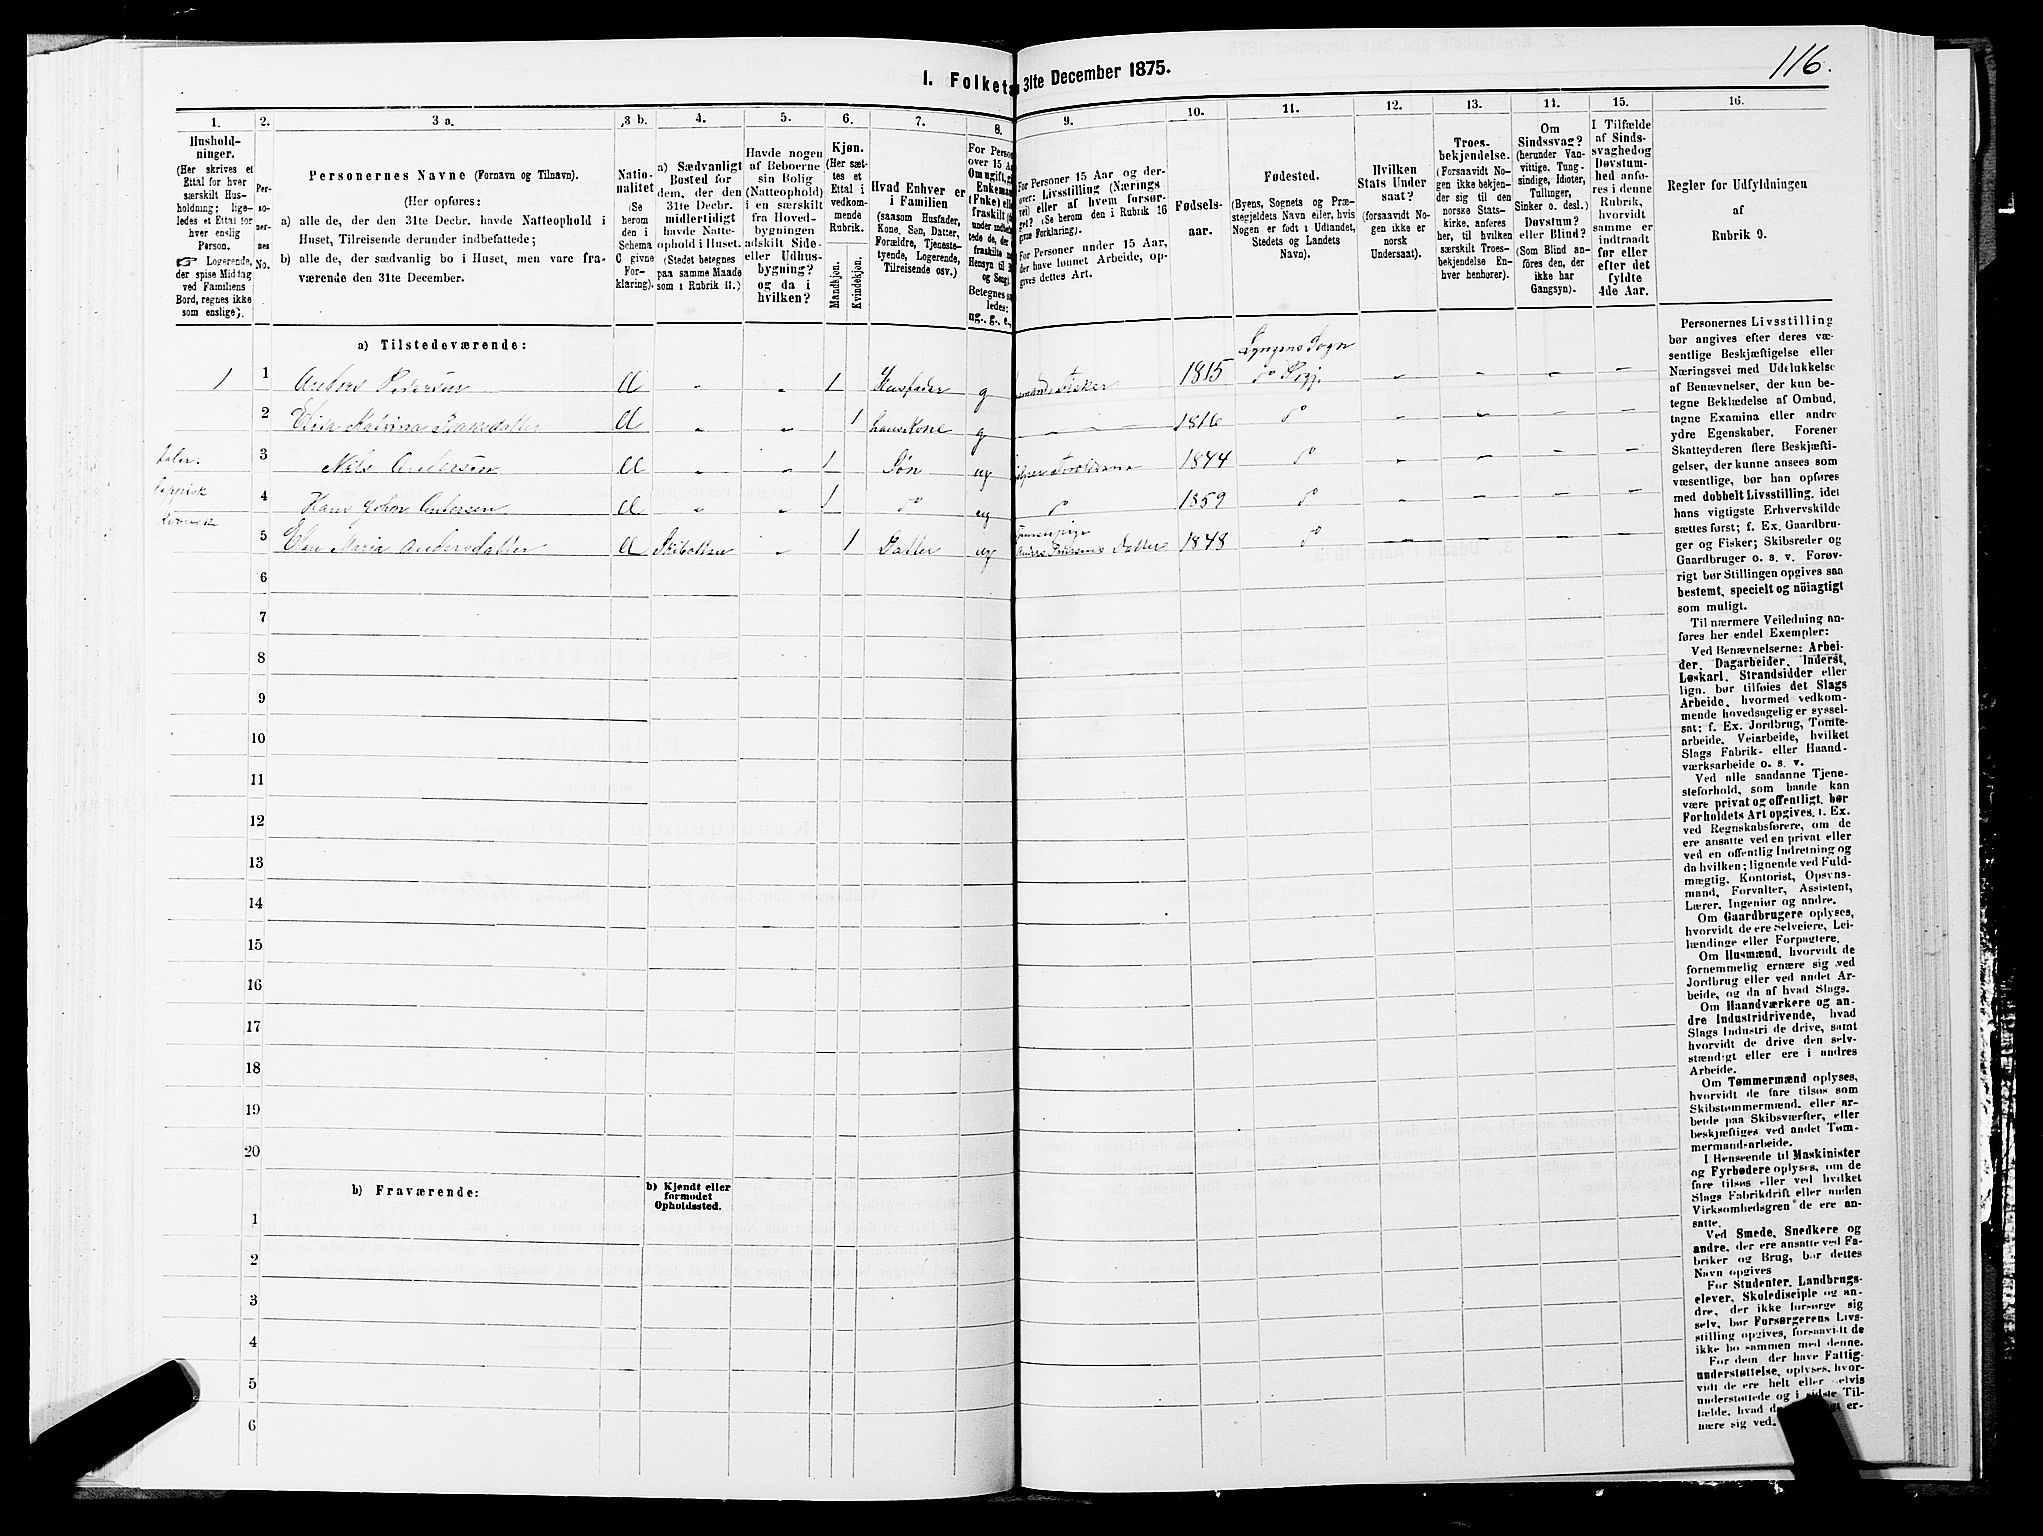 116.
I. Folketa
31te December 1875.
1.
2.
3 a.
3 b.
4.
5.
6.
7.
8.
9.
10.
11.
12.
13.
14.
15.
16.
Hushold-
ninger.
(Her skrives et
Ettal for hver
særskilt Hus-
holdning; lige-
ledes et Ettal for
hver enslig
Person.
☞ Logerende,
der spise Middag
ved Familiens
Bord, regnes ikke
som enslige).
Per-
so-
ner-
nes
No.
Personernes Navne (Fornavn og Tilnavn).
(Her opføres:
a) alle de, der den 31te Decbr. havde Natteophold i
Huset, Tilreisende derunder indbefattede;
b) alle de, der sædvanlig bo i Huset, men vare fra-
værende den 31te December.
Natio-
nalitet
(Se
herom
den i
Schema
O givne
For-
klaring).
a) Sædvanligt
Bosted for
dem, der den
31te Decbr.
midlertidigt
havde Natte-
ophold i Huset.
(Stedet betegnes
paa samme Maade
som i Rubrik 11.)
Havde nogen
af Beboerne
sin Bolig
(Natteophold)
i en særskilt
fra Hoved-
bygningen
adskilt Side-
eller Udhus-
bygning?
og da i
hvilken?
Kjøn.
(Her sæt-
tes et
Ettal i
vedkom-
mende
Rubrik.
Mandkjøn.
Kvindekjøn.
Hvad Enhver er
i Familien
(saasom Husfader,
Kone, Søn, Datter,
Forældre, Tjeneste-
tyende, Logerende,
Tilreisende osv.)
For Person
over 15 Aar
Om ugift, g
Enkeman
(Enke) elle
fraskilt (d
under indbefa
tede de, der
fraskilte
Hensyn til
og Seng).
Betegnes s
ledes:
ug., g., e.,
For Personer 15 Aar og der-
over: Livsstilling (Nærings
vei) eller af hvem forsør-
get? (Se herom den i Rubrik 16
givne Forklaring).
For Personer under 15 Aar,
der have lønnet Arbeide, op-
gives dettes Art.
Fødsels-
aar.
Fødested.
(Byens, Sognets og Præ-
stegjeldets Navn eller, hvis
Nogen er født i Udlandet,
Stedets og Landets
Navn).
Hvilken
Stats Under
saat?
(forsaavidt No-
gen ikke er
norsk
Undersaat).
Troes-
bekjendelse.
(Forsaavidt No-
gen ikke bekjen-
der sig til den
norske Stats-
kirke, anføres
her, til hvilken
særskilt Troes-
bekjendelse En-
hver henhører).
Om
Sindssvag?
(herunder Van-
vittige, Tung-
sindige, Idioter,
Tullinger,
Sinker o. desl.)
Døvstum?
eller Blind?
(Som Blind an-
føres den, der
ikke har
Gangsyn).
I Tilfælde
af Sinds-
svaghed og
Døvstum-
hed anfø-
res i denne
Rubrik,
hvorvidt
samme er
indtraadt
før eller
efter det
fyldte
4de Aar.
Regler for Udfyldningen
af
Rubrik 9.
a) Tilstedeværende:
1 1 Anders Pedersen 1 Husfader g Fisker 1815 Lyngens Sogn
do Pregj.
2 1 hans Kone g 1816 do
3 Nils Andersen 1 Søn ug 1844 do
4 Hans John Andersen 1 do ug do 1859 do
5 Elen Maria Andersdatter Skibotten 1 Datter ug Datter 1848 do
6
7
8
9
10
11
12
13
14
15
16
17
18
19
20
b) Fraværende:
b) Kjendt eller
formodet
Opholdssted.
1
2
3
4
5
6
Personernes Livsstilling
bør angives efter deres væ-
sentlige Beskjæftigelse eller
Næringsvei med Udelukkelse
af Benævnelser, der kun be-
tegne Beklædelse af Ombud,
tagne Examina eller andre
ydre Egenskaber. Forener
Skatteyderen flere Beskjæfti-
gelser, der kunne ansees som
væsentlige, bør han opføres
med dobbelt Livsstilling, idet
hans vigtigste Erhvervskilde
sættes først; f. Ex. Gaardbru-
ger og Fisker; Skibsreder og
Gaardbruger o. s. v. Forøv-
rigt bør Stillingen opgives saa
bestemt, specielt og nöiagtigt
som muligt.
Til nærmere Veiledning an-
føres her endel Exempler:
Ved Benævnelserne: Arbei-
der, Dagarbeider, Inderst,
Løskarl, Strandsidder eller
lign. bør tilføies det Slags
Arbeide, hvormed vedkom-
mende hovedsagelig er syssel-
sat; f. Ex. Jordbrug, Tomte-
arbeide, Veiarbeide, hvilket
Slags Fabrik- eller Haand-
værksarbeide o. s. v.
Ved alle saadanne Tjene-
steforhold, som baade kan
være privat og offentligt, bør
Forholdets Art opgives, f. Ex.
ved Regnskabsførere, om de
ere ansatte ved en privat eller
ved en offentlig Indretning og
da hvilken; lignende ved Fuld-
mægtig, Kontorist, Opsyns-
mand, Forvalter, Assistent,
Lærer, Ingeniør og andre.
Om Gaardbrugere oplyses,
hvorvidt de ere Selveiere, Lei-
lændinge eller Forpagtere.
Om Husmænd, hvorvidt de
fornemmelig ernære sig ved
Jordbrug eller ved andet Ar-
beide, og da af hvad Slags.
Om Haandværkere og an-
dre Industridrivende, hvad
Slags Industri de drive, samt
hvorvidt de drive den selv-
stændigt eller ere i andres
Arbeide.
Om Tømmermænd oplyses,
hvorvidt de fare tilsøs som
Skibstømmermænd, eller ar-
beide paa Skibsværfter, eller
beskjæftiges ved andet Tøm-
mermandsarbeide.
I Henseende til Maskinister
og Fyrbødere oplyses, om de
fare tilsøs eller ved hvilket
Slags Fabrikdrift eller anden
Virksomhedsgren de ere an-
satte.
Ved Smede, Snedkere og
andre, der ere ansatte ved Fa-
briker og Brug, bør dettes
Navn opgives
For Studenter, Landbrugs-
elever, Skoledisciple og an-
dre, der ikke forsørge sig
selv, bør Forsørgerens Livs-
stilling opgives, forsaavidt de
ikke bo sammen med denne.
For dem, der have Fattig-
understøttelse, oplyses, hvor-
vidt de ere helt eller delvis
understøttede og i sidste Til-
fælde, hvad de er-
nære sig ved.